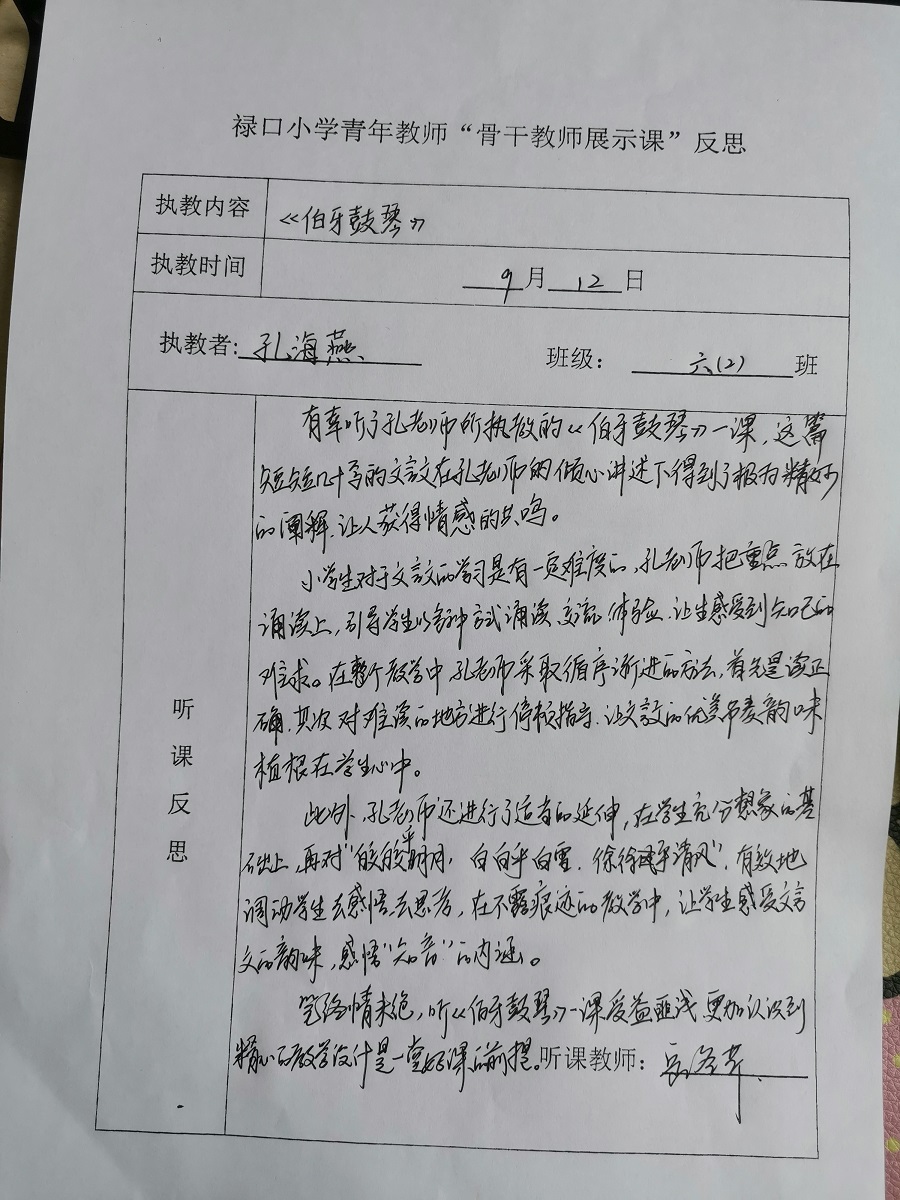 禄口小学青年教师“骨干教师展示课”反思
执教内容 《伯牙鼓琴》
执教时间 9月12日
执教者: 孔海燕 班级: 六(2) 班
听课反思
有幸听了孔老师所执教的《伯牙鼓琴》一课，这篇
短短几十字的文言文在孔老师的倾心讲述下得到了极为精妙
的阐释，让人获得情感的共鸣。
小学生对于文言文的学习是有一定难度的，孔老师把重点放在
诵读上，引导学生以多种方式诵读、交流、体验，让生感受到知己的
难求。在整个教学中孔老师采取循序渐进的方法，首先是读正
确，其次对难读的地方进行停顿指导，让文言文的优美节奏韵味
植根在学生心中。
此外，孔老师还进行了适当的延伸，在学生充分想象的基
础上，再对“皎皎乎明月，白白乎白雪，徐徐乎清风”，有效地
调动学生去感悟去思考，在不露痕迹的教学中，让学生感受文言
文的韵味，感悟“知音”的内涵。
笔终情未绝，听《伯牙鼓琴》一课受益匪浅，更加认识到
精心的教学设计是一堂好课的前提。听课教师: